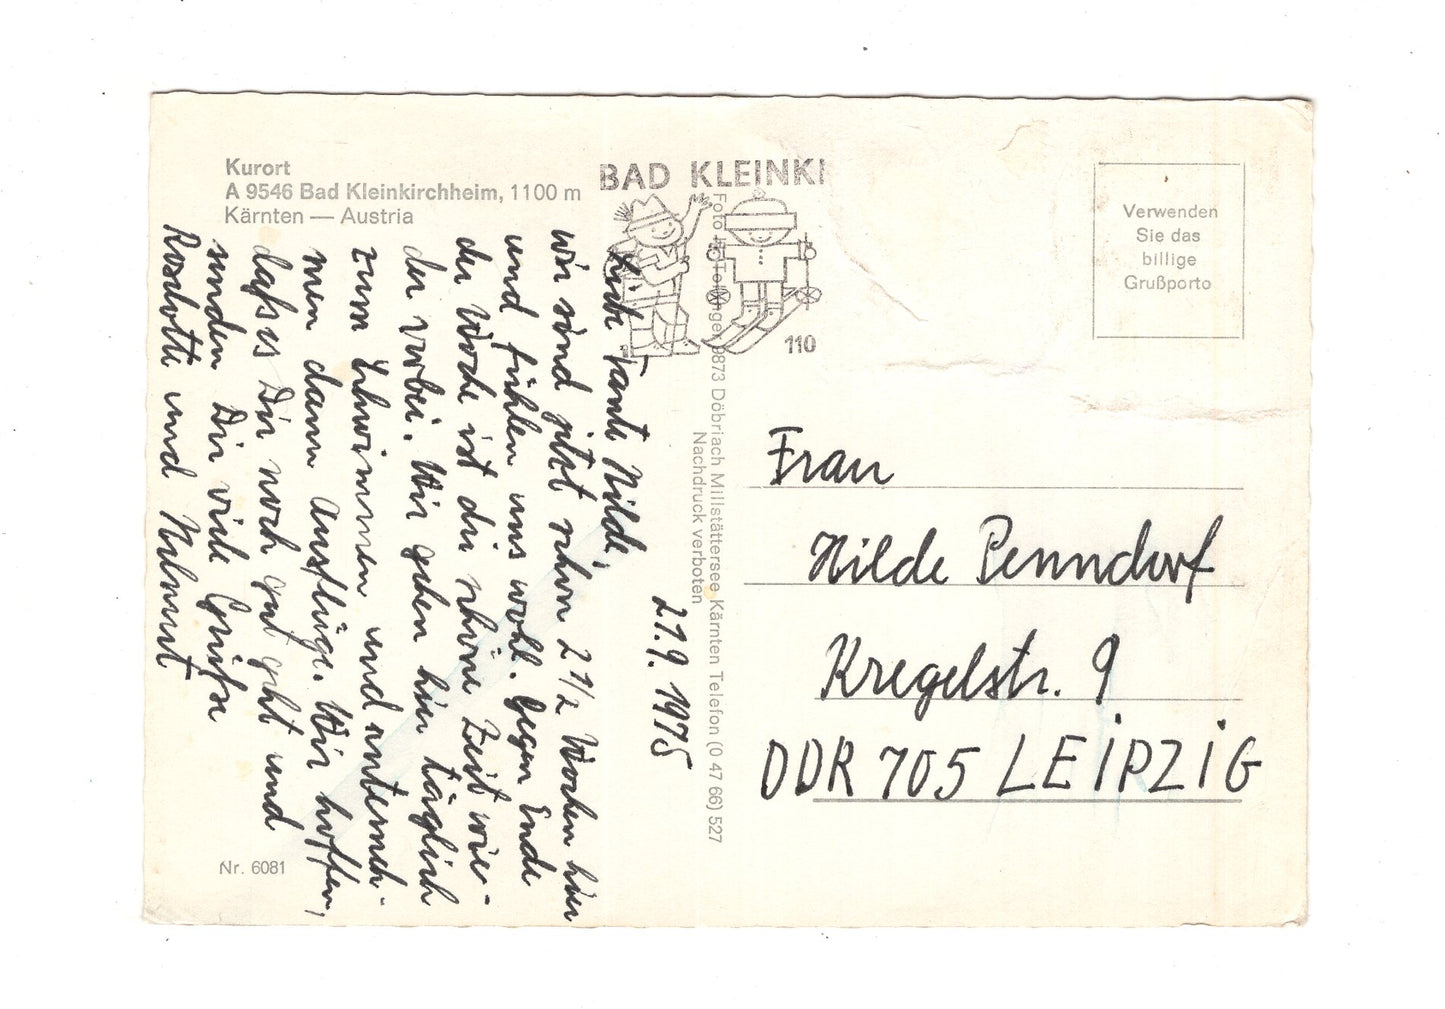 Kurort
A 9546 Bad Kleinkirchheim, 1100 m
Kärnten — Austria
BAD KLEINKI
110
Verwenden
Sie das
billige
Grußporto
21.9.1975
Liebe Tante Hilde,
wir sind jetzt schon 2 1/2 Wochen hier
und fühlen uns wohl. Gegen Ende
der Woche ist die schöne Zeit wie-
der vorbei. Wir gehen hier täglich
zum Schwimmen und unterneh-
men dann Ausflüge. Wir hoffen,
daß es Dir noch gut geht und
senden Dir viele Grüße
und Helmut
Foto Tollinger, 9873 Döbriach Millstättersee Kärnten Telefon (0 47 66) 527
Nachdruck verboten
Frau
Hilde Penndorf
Kregelstr. 9
DDR 705 LEIPZIG
Nr. 6081